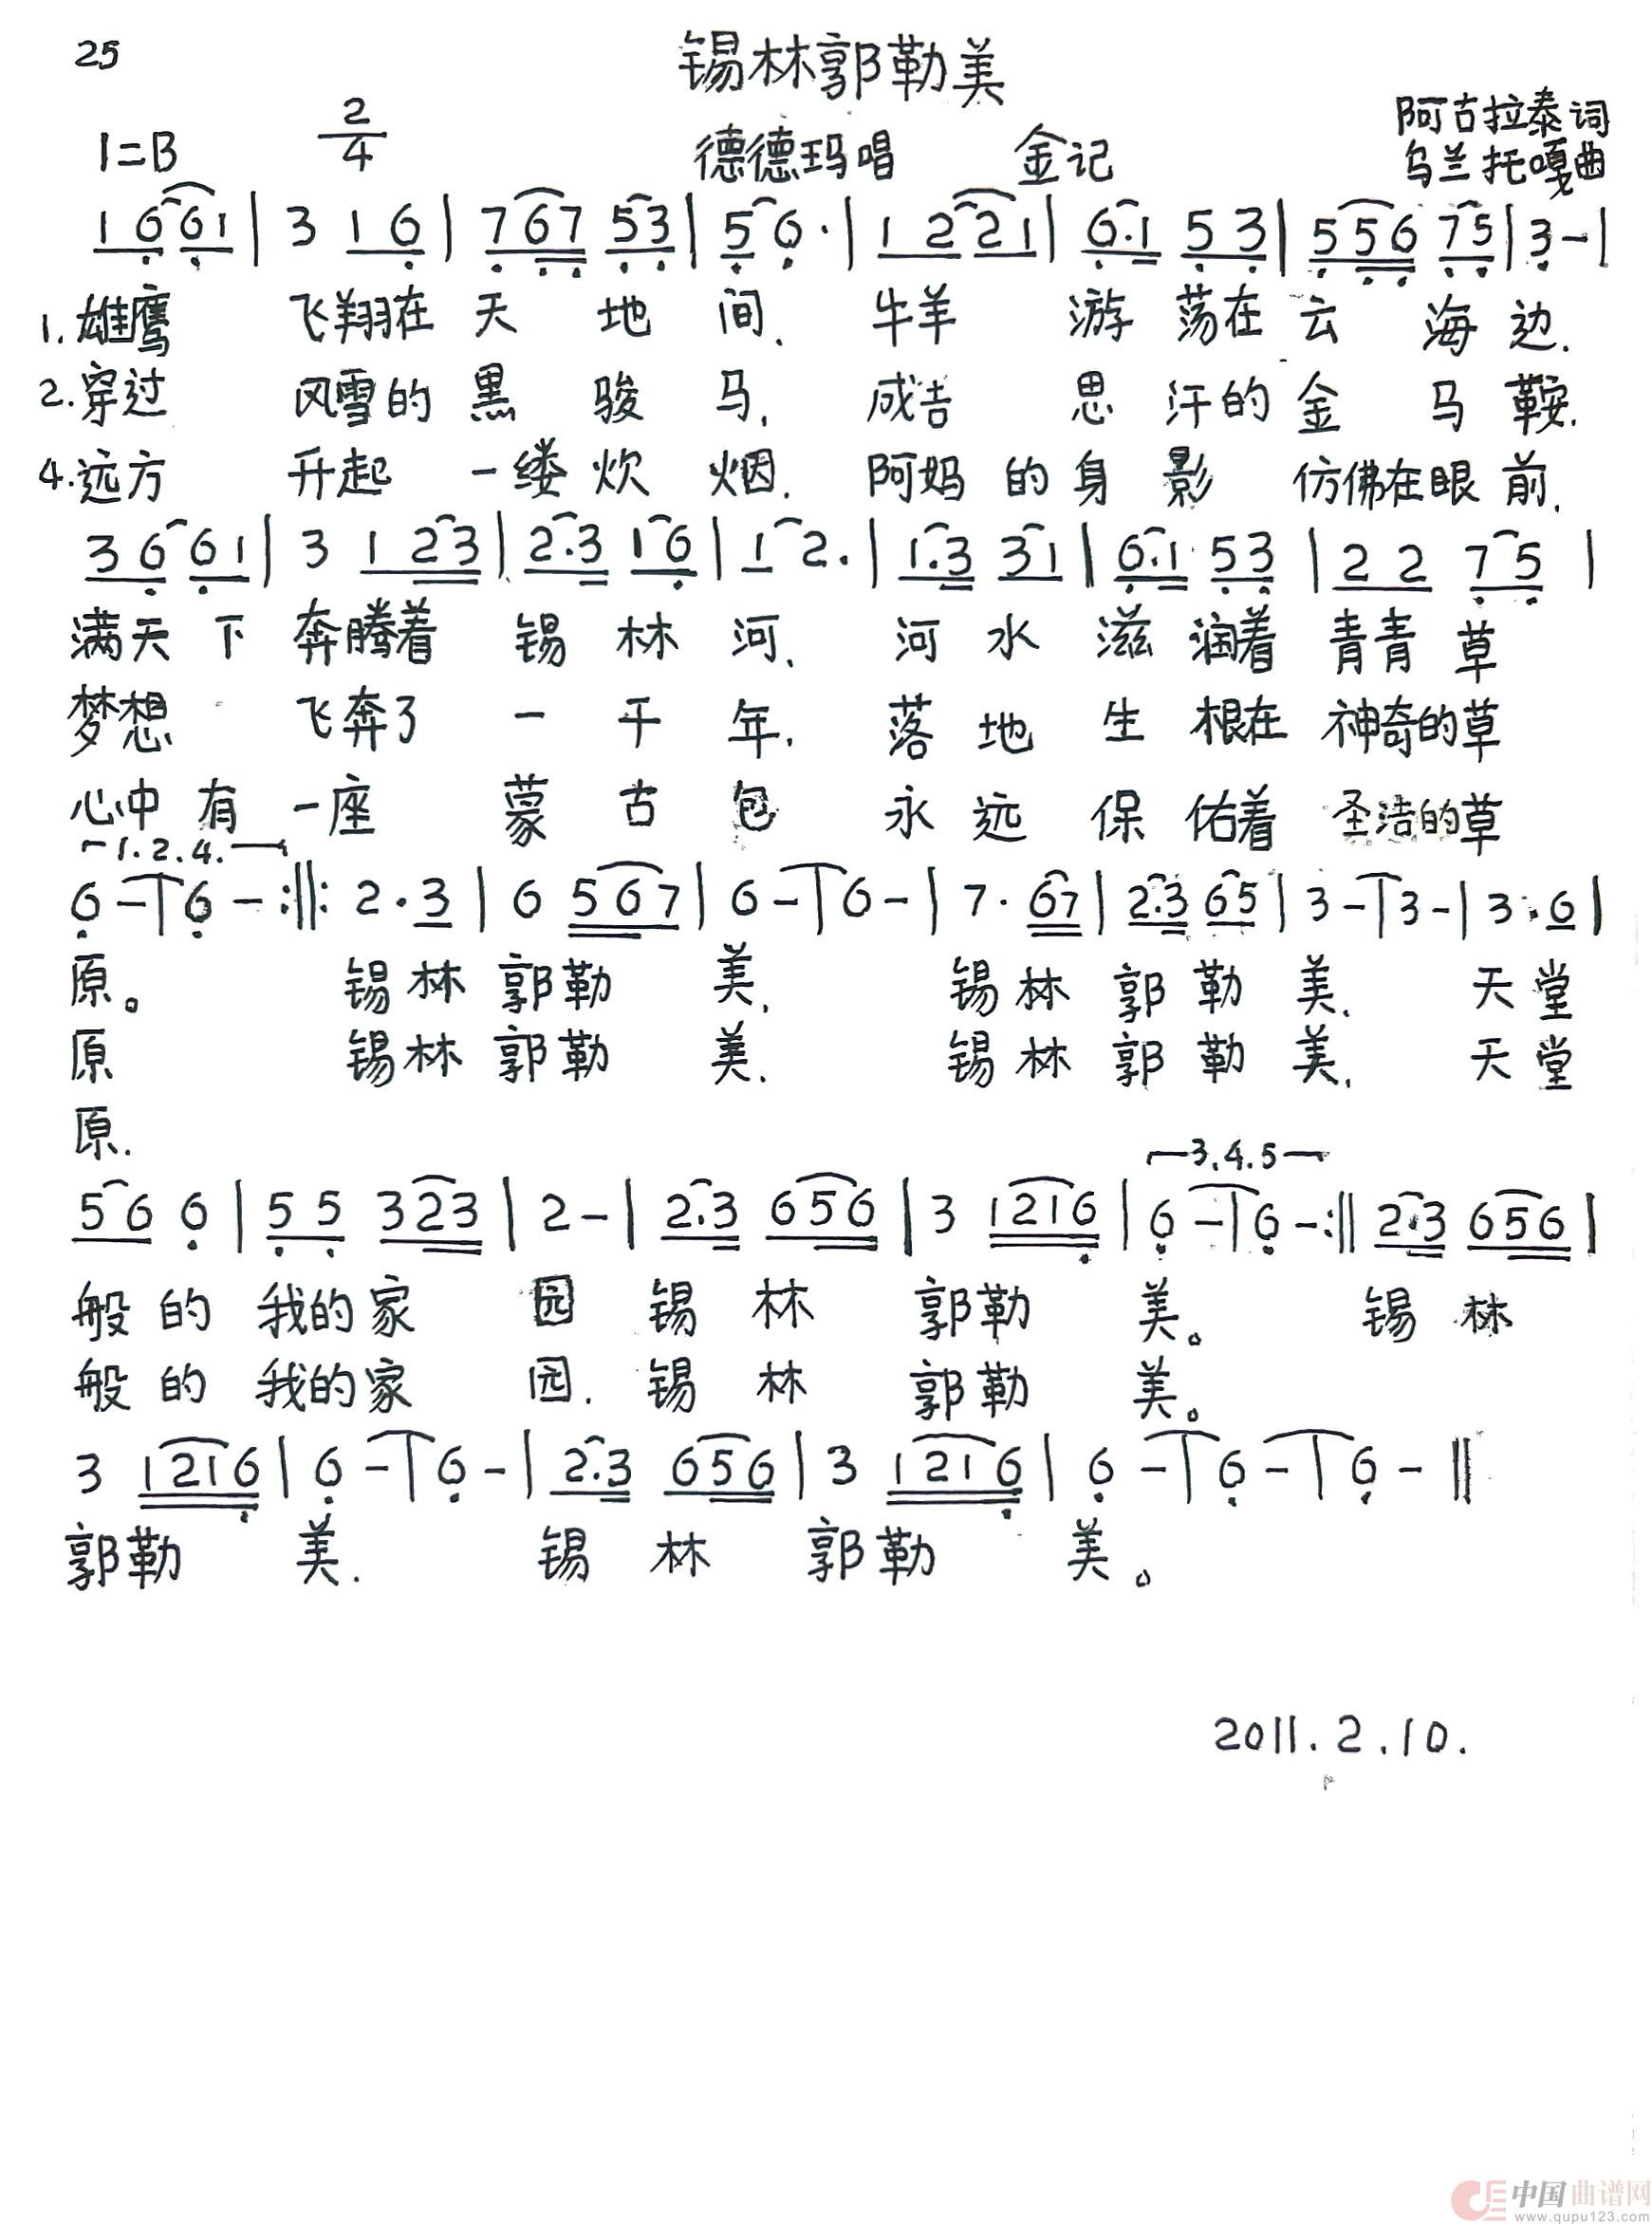 25
锡林郭勒美
1=B 2/4 德德玛唱 金记 阿古拉泰词
乌兰托嘎曲
1 6 6 1 | 3 1 6 | 7 6 7 5 3 | 5 6 · | 1 2 2 1 | 6 . 1 5 3 | 5 5 6 7 5 | 3 - |
1. 雄鹰 飞翔在 天 地 间. 牛羊 游 荡在 云 海 边.
2. 穿过 风雪的 黑 骏 马. 成吉 思 汗的 金 马 鞍.
4. 远方 升起 一缕 炊 烟. 阿妈 的 身 影 仿佛在眼 前.
3 6 6 1 | 3 1 2 3 | 2 . 3 1 6 | 1 2 . | 1 . 3 3 1 | 6 . 1 5 3 | 2 2 7 5 |
满天 下 奔腾着 锡 林 河. 河 水 滋 润着 青青 草
梦想 飞奔了 一 千 年. 落 地 生 根在 神奇的草
心中 有 一座 蒙 古 包 永 远 保 佑着 圣洁的草
1.2.4.
6 - | 6 - :||: 2 · 3 | 6 5 6 7 | 6 - | 6 - | 7 · 6 7 | 2 . 3 6 5 | 3 - | 3 - | 3 . 6 |
原。 锡林 郭勒 美. 锡林 郭 勒 美. 天 堂
原 锡林 郭勒 美. 锡林 郭 勒 美. 天 堂
原.
3.4.5
5 6 6 | 5 5 3 2 3 | 2 - | 2 . 3 6 5 6 | 3 1 2 1 6 | 6 - | 6 - :|| 2 . 3 6 5 6 |
般 的 我的家 园 锡 林 郭勒 美。 锡 林
般 的 我的家 园. 锡 林 郭勒 美。
3 1 2 1 6 | 6 - | 6 - | 2 . 3 6 5 6 | 3 1 2 1 6 | 6 - | 6 - | 6 - ||
郭勒 美. 锡 林 郭勒 美。
2011.2.10.
中国曲谱网
www.qupu123.com